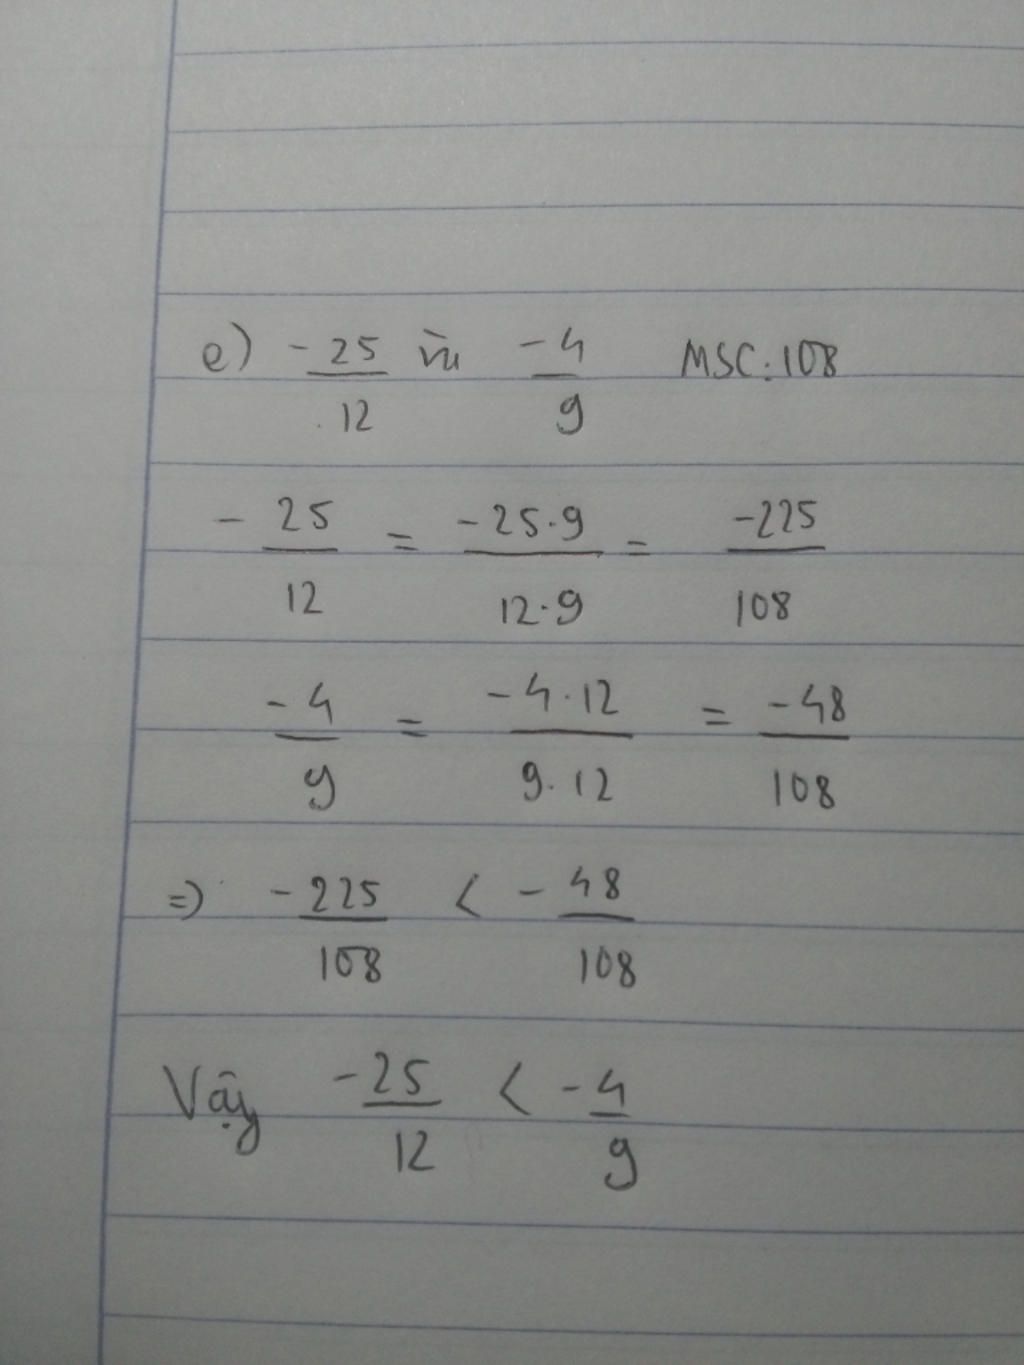 e) -25/12 và -4/9 MSC: 108
-25/12 = -25·9/12·9 = -225/108
-4/9 = -4·12/9·12 = -48/108
=> -225/108 < -48/108
Vậy -25/12 < -4/9